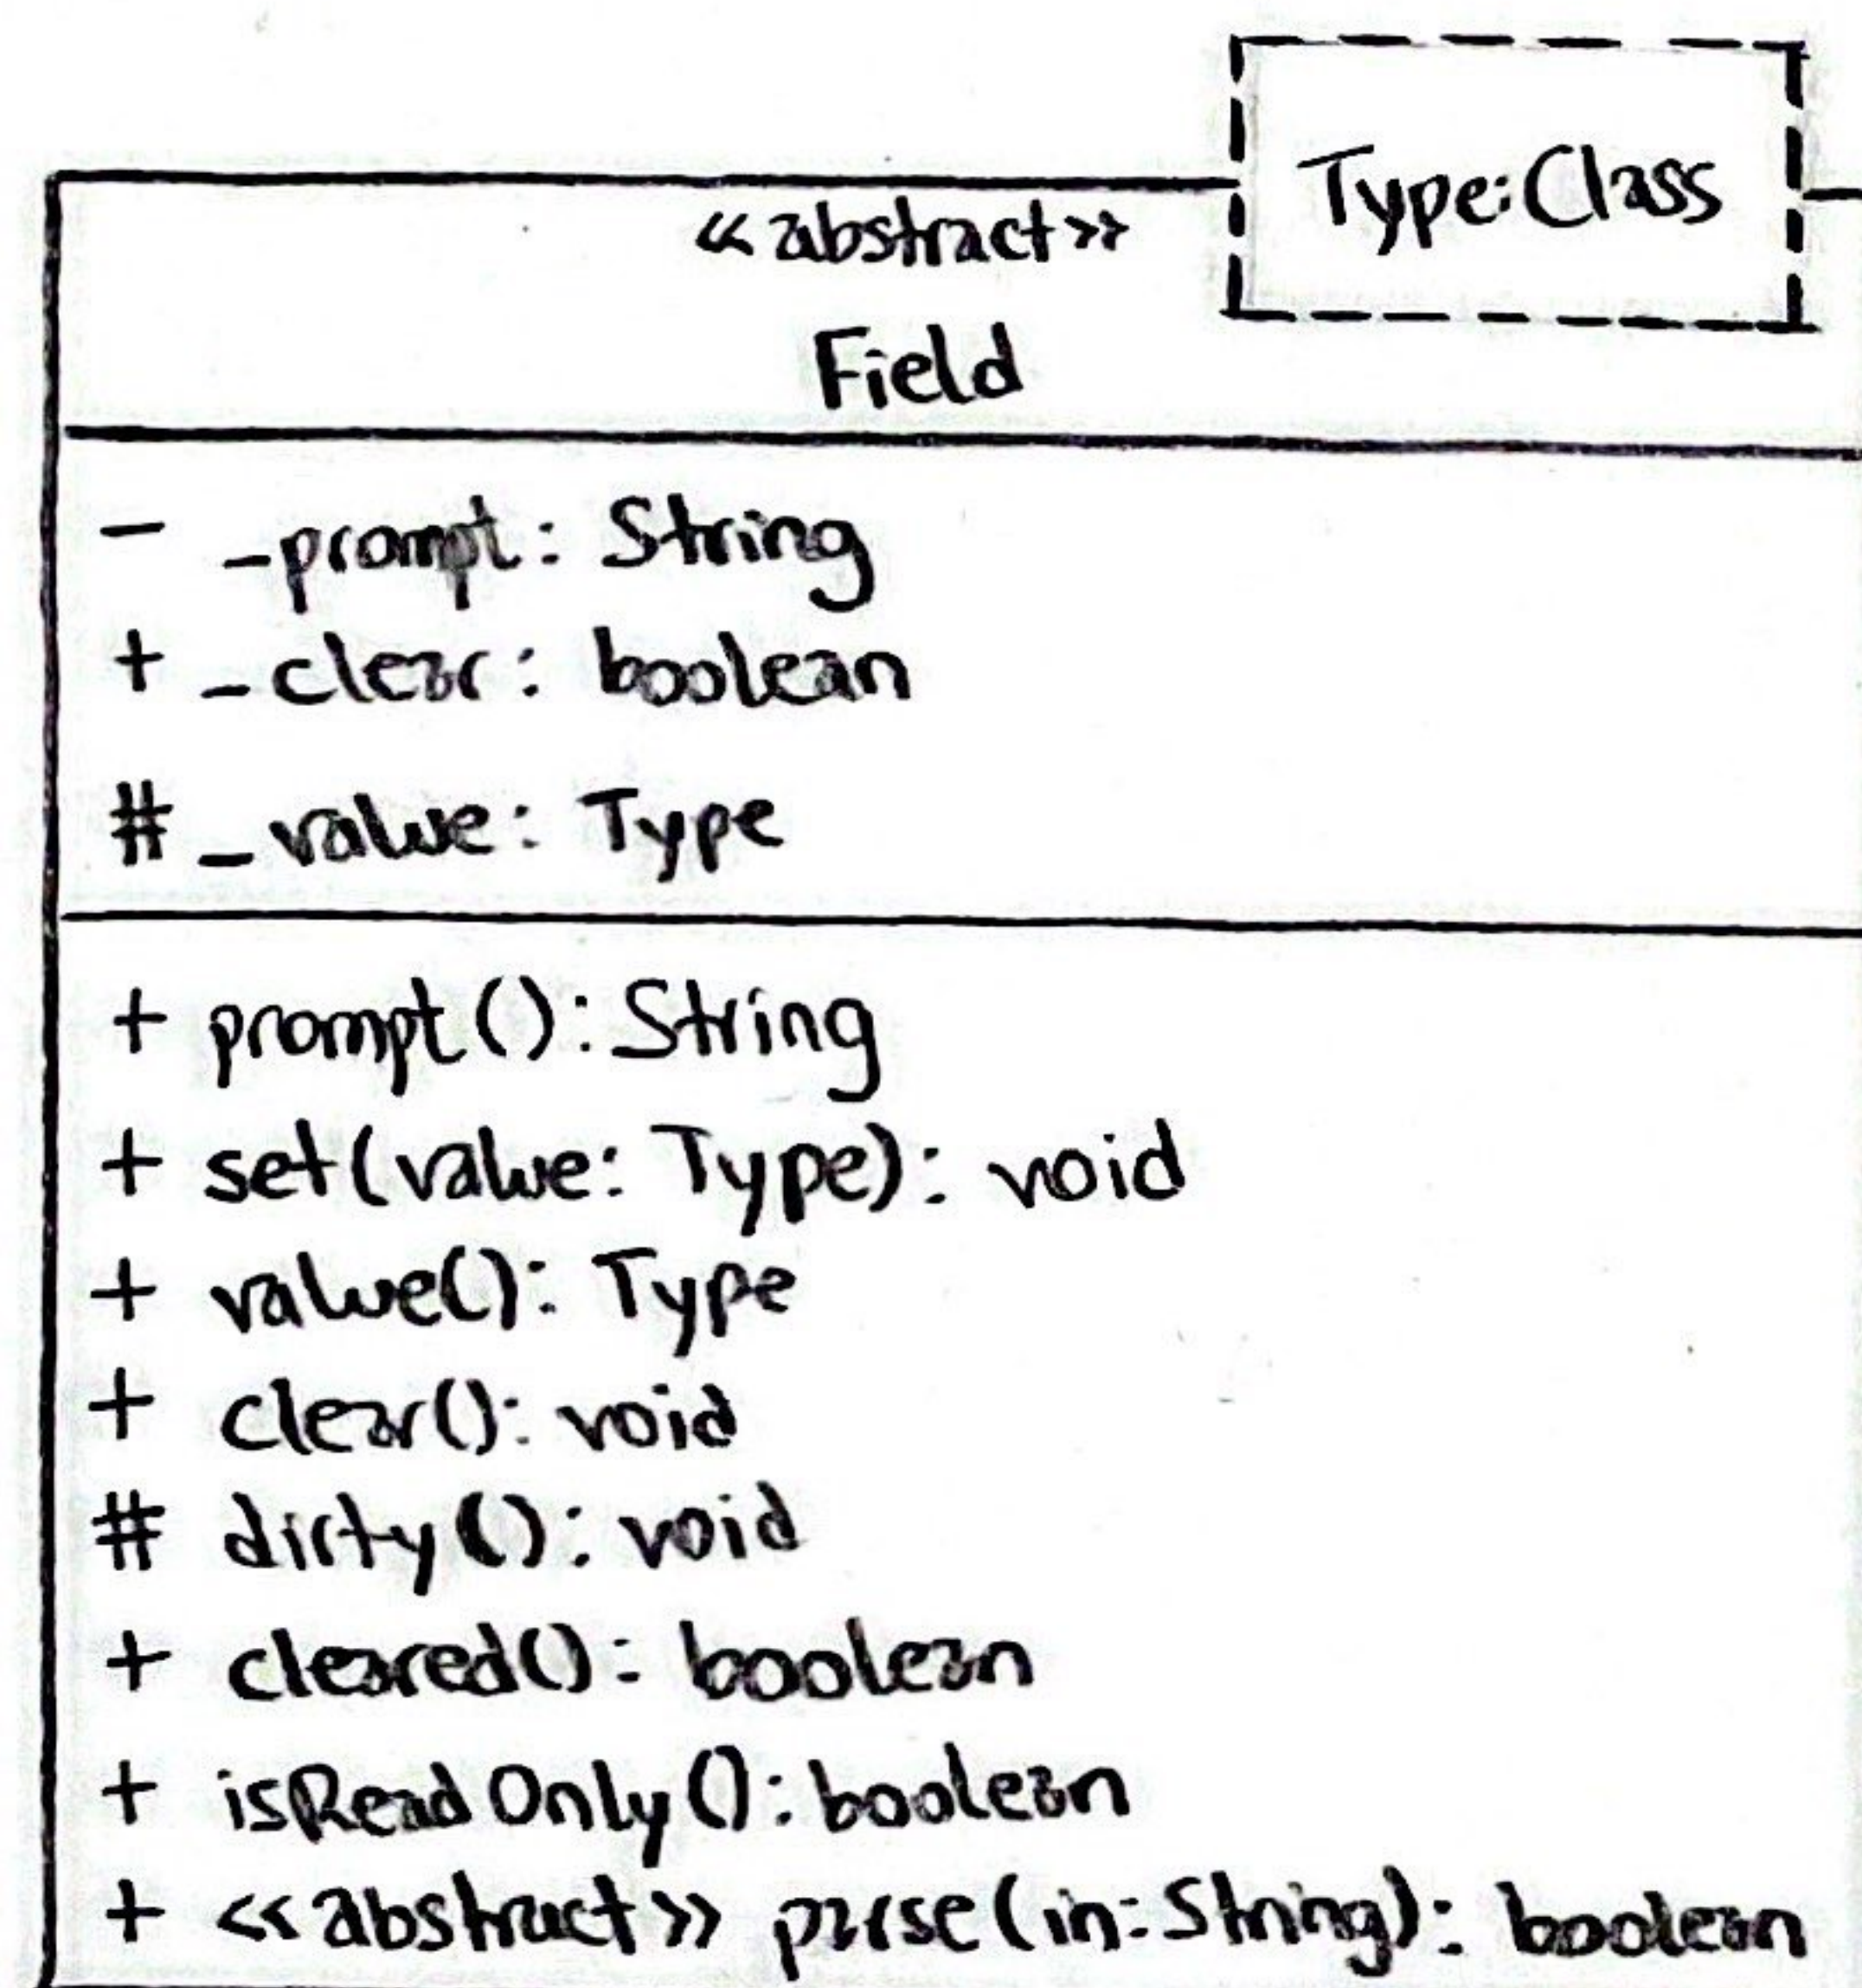 Type:Class
«abstract»
Field
- _prompt: String
+ _clear: boolean
# _value: Type
+ prompt(): String
+ set(value: Type): void
+ value(): Type
+ clear(): void
# dirty(): void
+ cleared(): boolean
+ isReadOnly(): boolean
+ «abstract» parse(in:String): boolean